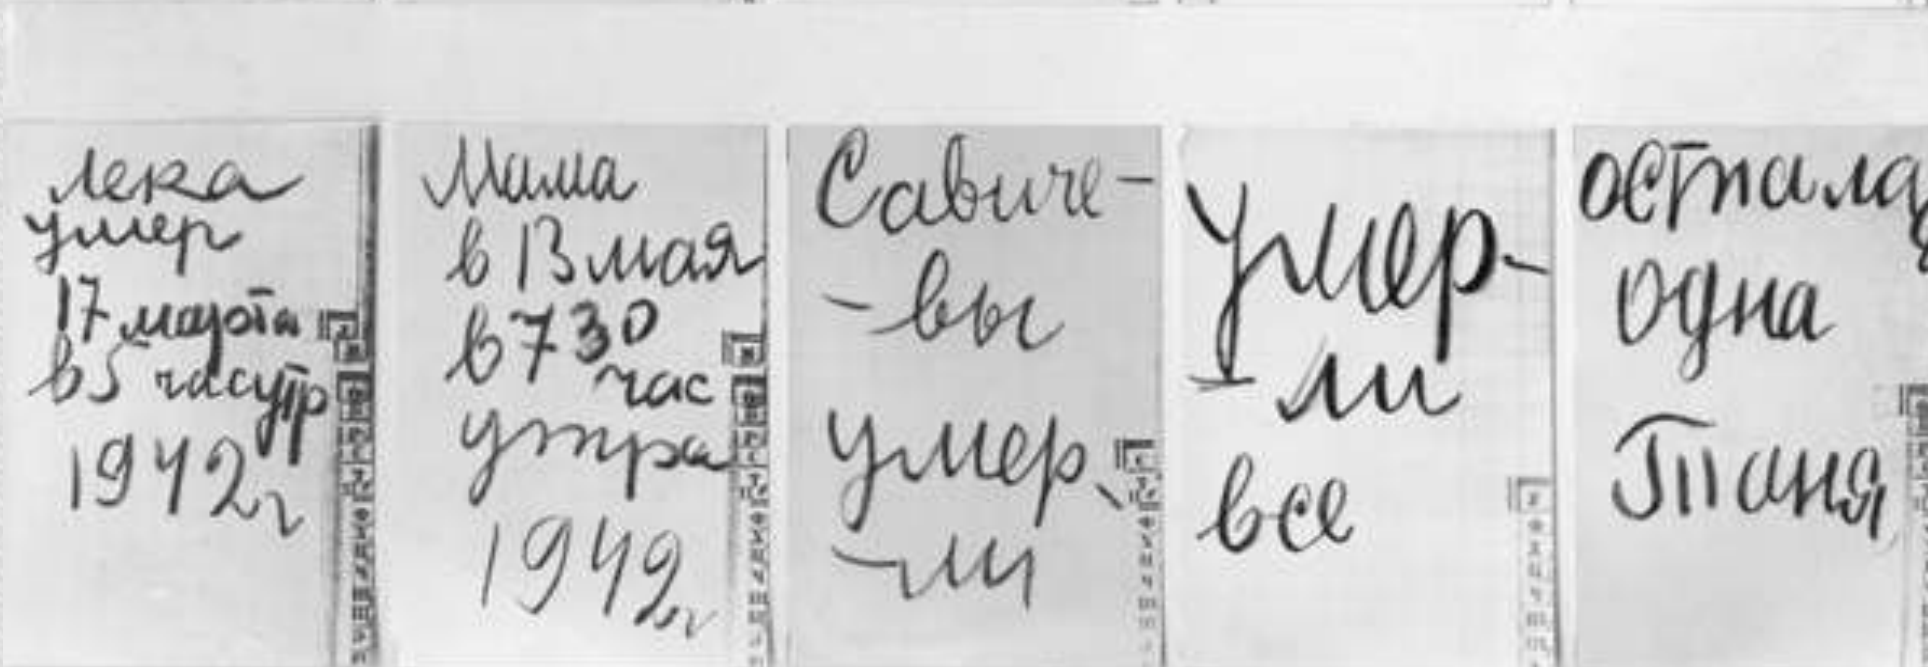 Лека
умер
17 марта
в 5 часутр
1942г
Мама
в 13 мая
в 7 30
час
утра
1942г
Савиче-
-вы
умер
-ли
умер-
-ли
все
остала
одна
Таня